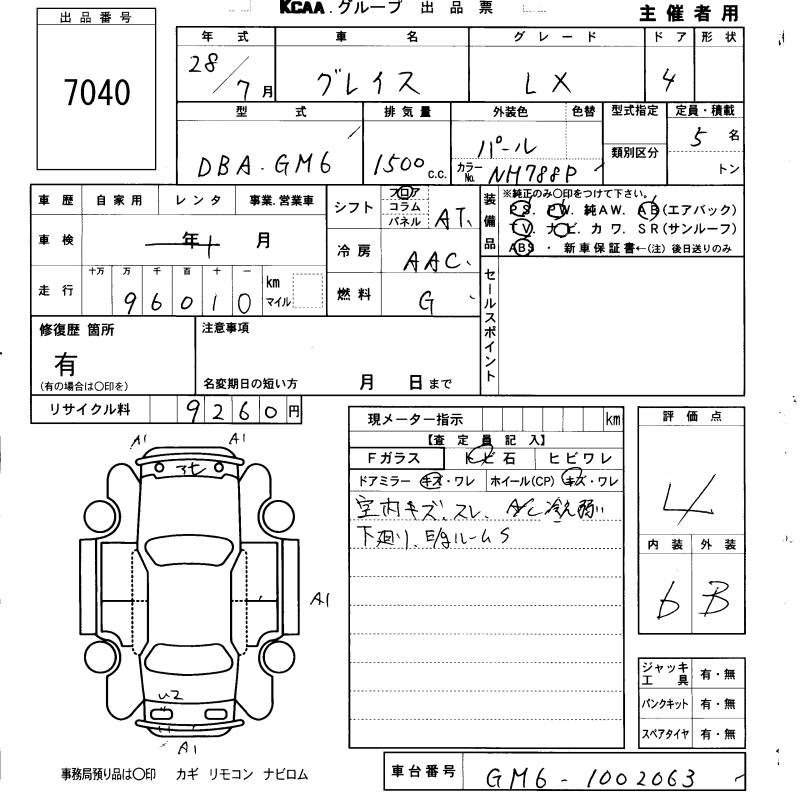 KCAA.グループ 出品票
主催者用
出品番号
7040
年式 車名 グレード ドア 形状
28/7月 グレイス LX 4
型式 排気量 外装色 色替 型式指定 定員・積載
DBA.GM6 1500c.c. パール 5名
カラーNo. NH788P 類別区分 トン
車歴 自家用 レンタ 事業.営業車
シフト フロア コラム パネル AT.
装備品 ※純正のみ○印をつけて下さい。
PS. PW. 純AW. AB(エアバック)
TV. ナビ. カワ. SR(サンルーフ)
ABS ・ 新車保証書←(注) 後日送りのみ
車検 年 月
冷房 AAC.
走行 十万 万 千 百 十 一 km マイル
96010
燃料 G
セールスポイント
修復歴 箇所
有
(有の場合は○印を)
注意事項
名変期日の短い方 月 日まで
リサイクル料 9260円
現メーター指示 km
【査定員記入】
Fガラス トビ石 ヒビワレ
ドアミラー キズ・ワレ ホイール(CP) キズ・ワレ
室内キズ.スレ. A/C冷え弱い
下廻り.E/gルームS
評価点
4
内装 外装
6 B
A1 A1
A1
U2
A1
ジャッキ工具 有・無
パンクキット 有・無
スペアタイヤ 有・無
事務局預り品は○印 カギ リモコン ナビロム
車台番号 GM6-1002063